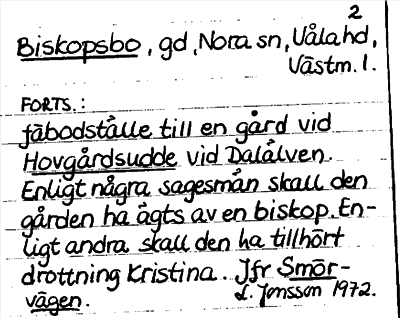 2
Biskopsbo, gd, Nora sn, Våla hd,
Västm. l.
FORTS.:
fäbodställe till en gård vid
Hovgårdsudde vid Dalälven.
Enligt några sagesmän skall den
gården ha ägts av en biskop. En-
ligt andra skall den ha tillhört
drottning Kristina. Jfr Smör-
vägen.
L. Jonsson 1972.